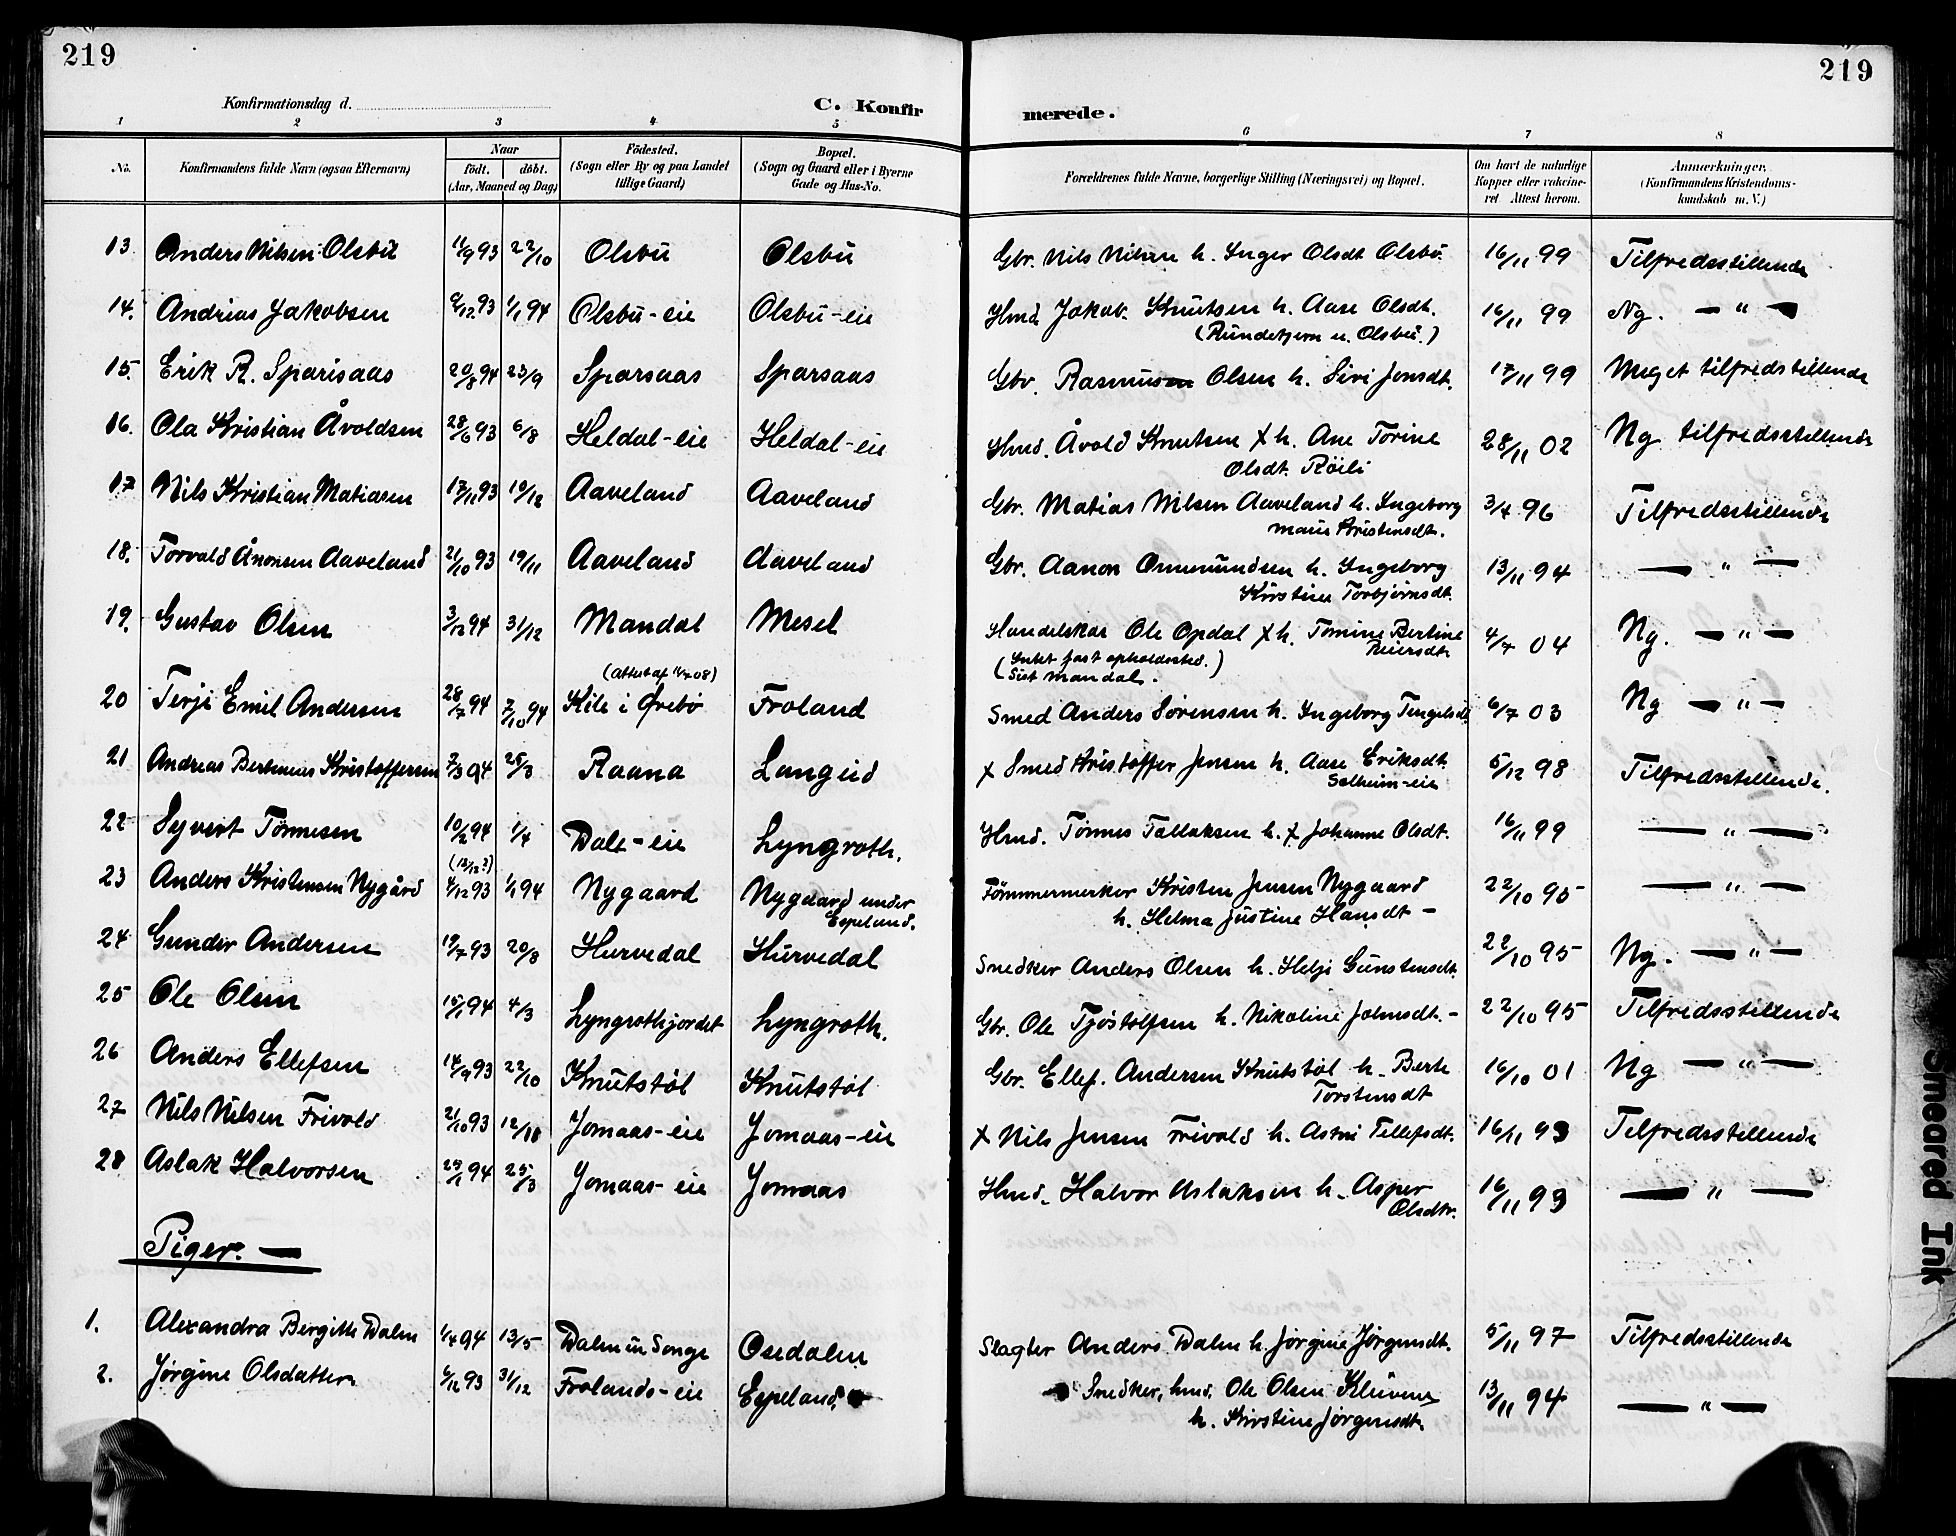 219
219
Konfirmationsdag d.
C. Konfir
merede.
1 2 3 4 5 6 7 8
No.
Konfirmandens fulde Navn (ogsaa Efternavn)
Naar
født. døbt.
(Aar, Maaned og Dag)
Fødested.
(Sogn eller By og paa Landet
tillige Gaard)
Bopæl.
(Sogn og Gaard eller i Byerne
Gade og Hus-No.
Forældrenes fulde Navne, borgerlige Stilling (Næringsvei) og Bopæl.
Om havt de naturlige
Kopper eller vakcine-
ret Attest herom.
Anmærkninger,
(Konfirmandens Kristendoms-
kundskab m. V.)
13. Anders Nilsen Olsbu 11/9 93 22/10 Olsbu Olsbu Gbr. Nils Nilsen h. Inger Olsdt Olsbu. 16/11 99 Tilfredsstillende
14. Andreas Jakobsen /12 93 1/1 94 Olsbu-eie Olsbu-eie Hmd. Jakob Knutsen h. Aase Olsdt. 16/11 99 Ng. — " —
(Rundetjern u. Olsbu.)
15. Erik R. Sparsaas 20/8 94 23/9 Sparsaas Sparsaas Gbr. Rasmus Olsen h. Siri Jonsdt. 17/11 99 Meget tilfredsstillende
16. Ola Kristian Åvoldsen 28/6 93 6/8 Heldal-eie Heldal-eie Hmd. Åvold Knutsen + h. Ane Torine 28/11 02 Ng tilfredsstillende
Olsdt. Röili
17 Nils Kristian Matiasen 17/11 93 10/12 Aaveland Aaveland Gbr. Matias Nilsen Aaveland h. Ingeborg 3/4 96 Tilfredsstillende
Marie Kristensdt.
18. Torvald Ånonsen Aaveland 21/10 93 19/11 Aaveland Aaveland Gbr. Aanon Ommundsen h. Ingeborg 13/11 94 — " —
Kirstine Torbjørnsdt.
19. Gustav Olsen 3/12 94 31/12 Mandal Mesel Handelskar Ole Opdal + h. Tomine Bertine 4/7 04 Ng. — " —
Reiersdt.
(Intet fast opholdssted.)
(Sist Mandal.
20 Terje Emil Andersen 28/7 94 7/10 94 Kile i Ørebö Froland Smed Anders Sörensen h. Ingeborg Tengelsdt 6/7 03 Ng — " —
21 Andreas Bertinius Kristoffersen 7/3 94 25/3 Raana Langlid + Smed Kristoffer Jensen h. Aase Eriksdt. 5/12 98 Tilfredsstillende.
Solheim-eie
22 Syvert Tönnesen 10/2 94 1/4 Dale-eie Lyngroth. Hmd. Tönnes Tallaksen h. + Johanne Olsdt. 16/11 99 — " —
23 Anders Kristensen Nygård (13/12?) 4/12 93 1/1 94 Nygaard Nygaard under Tömmermerker Kristen Jensen Nygaard 22/10 95 — " —
Espeland. h. Helma Justine Hansdt —
24 Gunder Andersen 19/7 93 20/8 Hurvedal Hurvedal Snedker Anders Olsen h. Helje Gunstensdt. 22/10 95 Ng. — " —
25 Ole Olsen 15/1 94 4/3 Lyngrothjordet Lyngroth. Gbr. Ole Tjöstolfsen h. Nikoline Johnsdt. — 22/10 95 Tilfredsstillende
26 Anders Ellefsen 14/9 93 22/10 Knutstöl Knutstöl Gbr. Ellef. Andersen Knutstöl h. Berte 16/10 01 Ng — " —
Torstensdt
27 Nils Nilsen Trivold 21/10 93 12/11 Jomaas-eie Jomaas-eie + Nils Jensen Trivold h. Astri Tellefsdt. 16/11 99 Tilfredsstillende
28 Aslak Halvorsen 25/1 94 25/3 Jomaas-eie Jomaas Hmd. Halvor Aslaksen h. Asper 16/11 99 — " —
Olsdtr.
Piger. —
1. Alexandra Bergitte Dalen 1/4 94 13/5 Dalen u Songe Osedalen Slagter Anders Dalen h. Jørgine Jørgensdt. 5/11 97 Tilfredsstillende
2. Jørgine Olsdatter /12 93 31/12 Frolands-eie Espeland. Snedker, hmd. Ole Olsen Kluvene 13/11 94 — " —
h. Kirstine Jørgensdt.
Smeared Ink